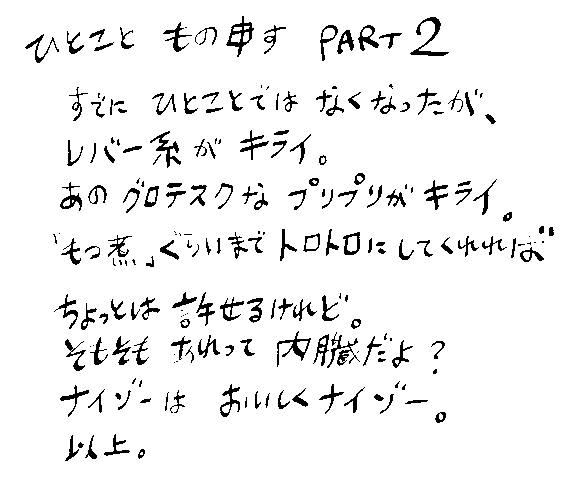 ひとこと もの申す PART2
すでに ひとことでは なくなったが、
レバー系が キライ。
あの グロテスクな プリプリが キライ。
「もつ煮」ぐらいまで トロトロにしてくれれば
ちょっとは 許せるけれど。
そもそも あれって 内臓だよ？
ナイゾーは おいしくナイゾー。
以上。